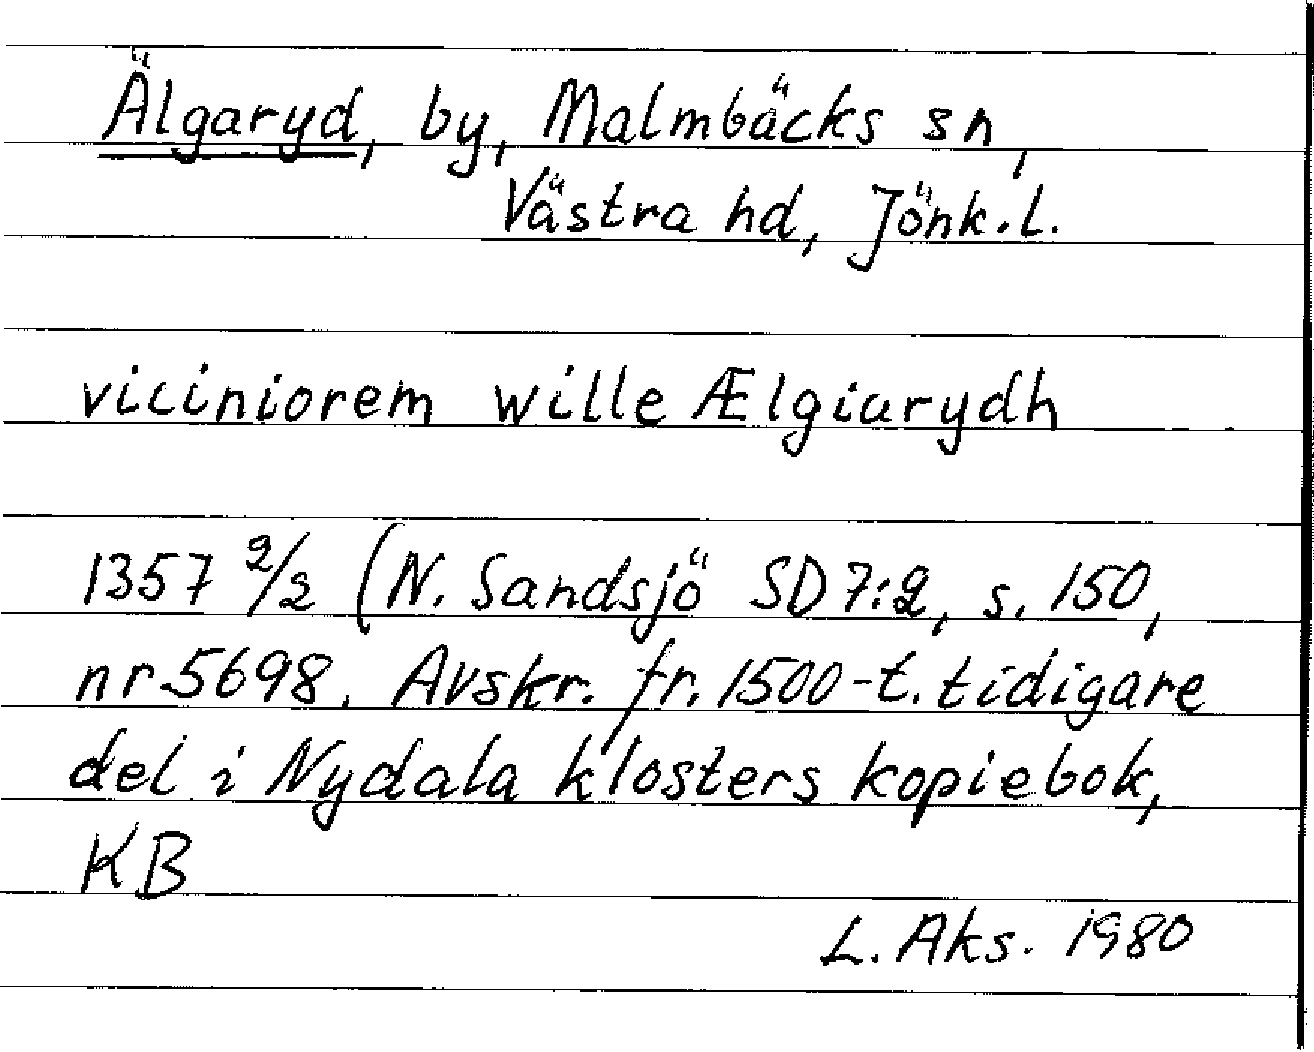 Älgaryd, by, Malmbäcks sn,
Västra hd, Jönk.l.
viciniorem wille Ælgiarydh
1357 2/2 (N. Sandsjö SD 7:2, s. 150,
nr 5698. Avskr. fr. 1500-t. tidigare
del i Nydala klosters kopiebok,
KB
L. Aks. 1980